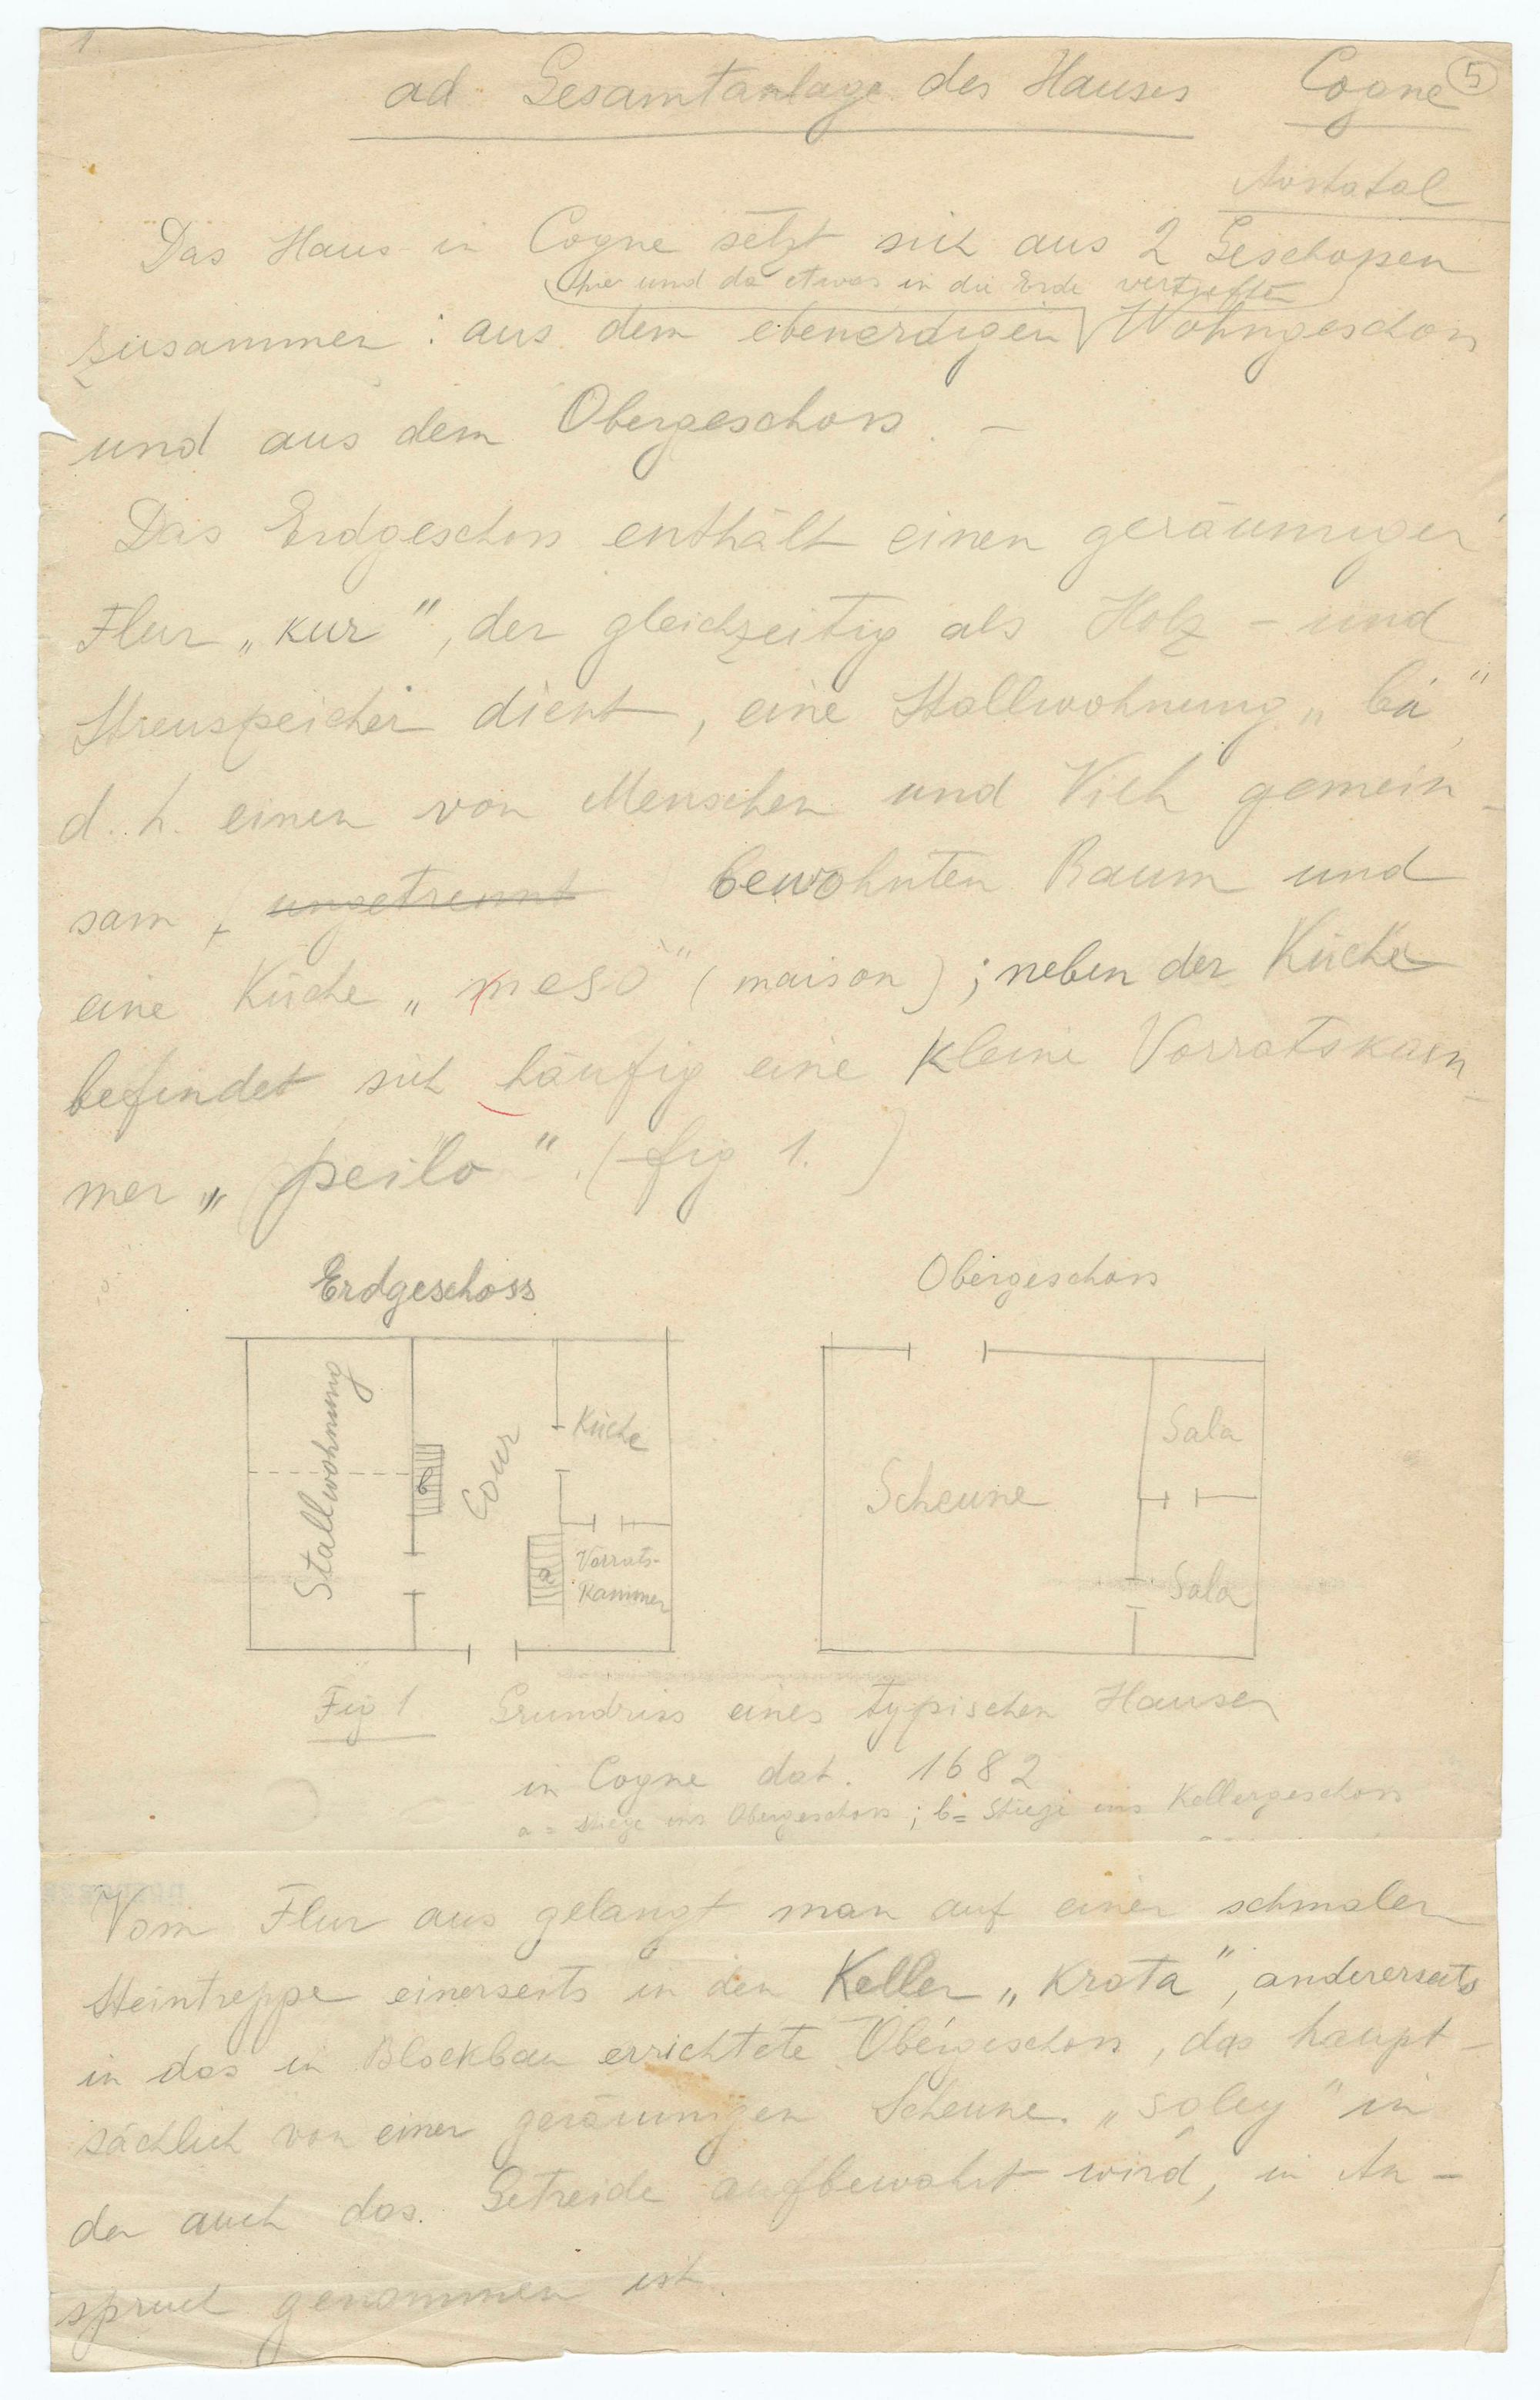 1
ad Gesamtanlage des Hauses Cogne 5
Aostatal
Das Haus in Cogne setzt sich aus 2 Geschossen
(hie und da etwas in die Erde vertieften)
zusammen: aus dem ebenerdigen Wohngeschoss
und aus dem Obergeschoss. –
Das Erdgeschoss enthält einen geräumigen
Flur „kur", der gleichzeitig als Holz- und
Streuspeicher dient, eine Stallwohnung „bá"
d. h. einen von Menschen und Vieh gemein-
sam, ungetrennt bewohnten Raum und
eine Küche „mesõ" (maison); neben der Küche
befindet sich häufig eine kleine Vorratskam-
mer „peilo". (fig 1.)
Erdgeschoss
Obergeschoss
Stallwohnung
b
Cour
Küche
a
Vorrats-
kammer
Scheune
Sala
Sala
Fig 1 Grundriss eines typischen Hauses
in Cogne dat. 1682
a = Stiege ins Obergeschoss; b = Stiege ins Kellergeschoss
Vom Flur aus gelangt man auf einer schmalen
Steintreppe einerseits in den Keller „krota", andererseits
in das in Blockbau errichtete Obergeschoss, das haupt-
sächlich von einer geräumigen Scheune „soley" in
der auch das Getreide aufbewahrt wird, in An-
spruch genommen ist.